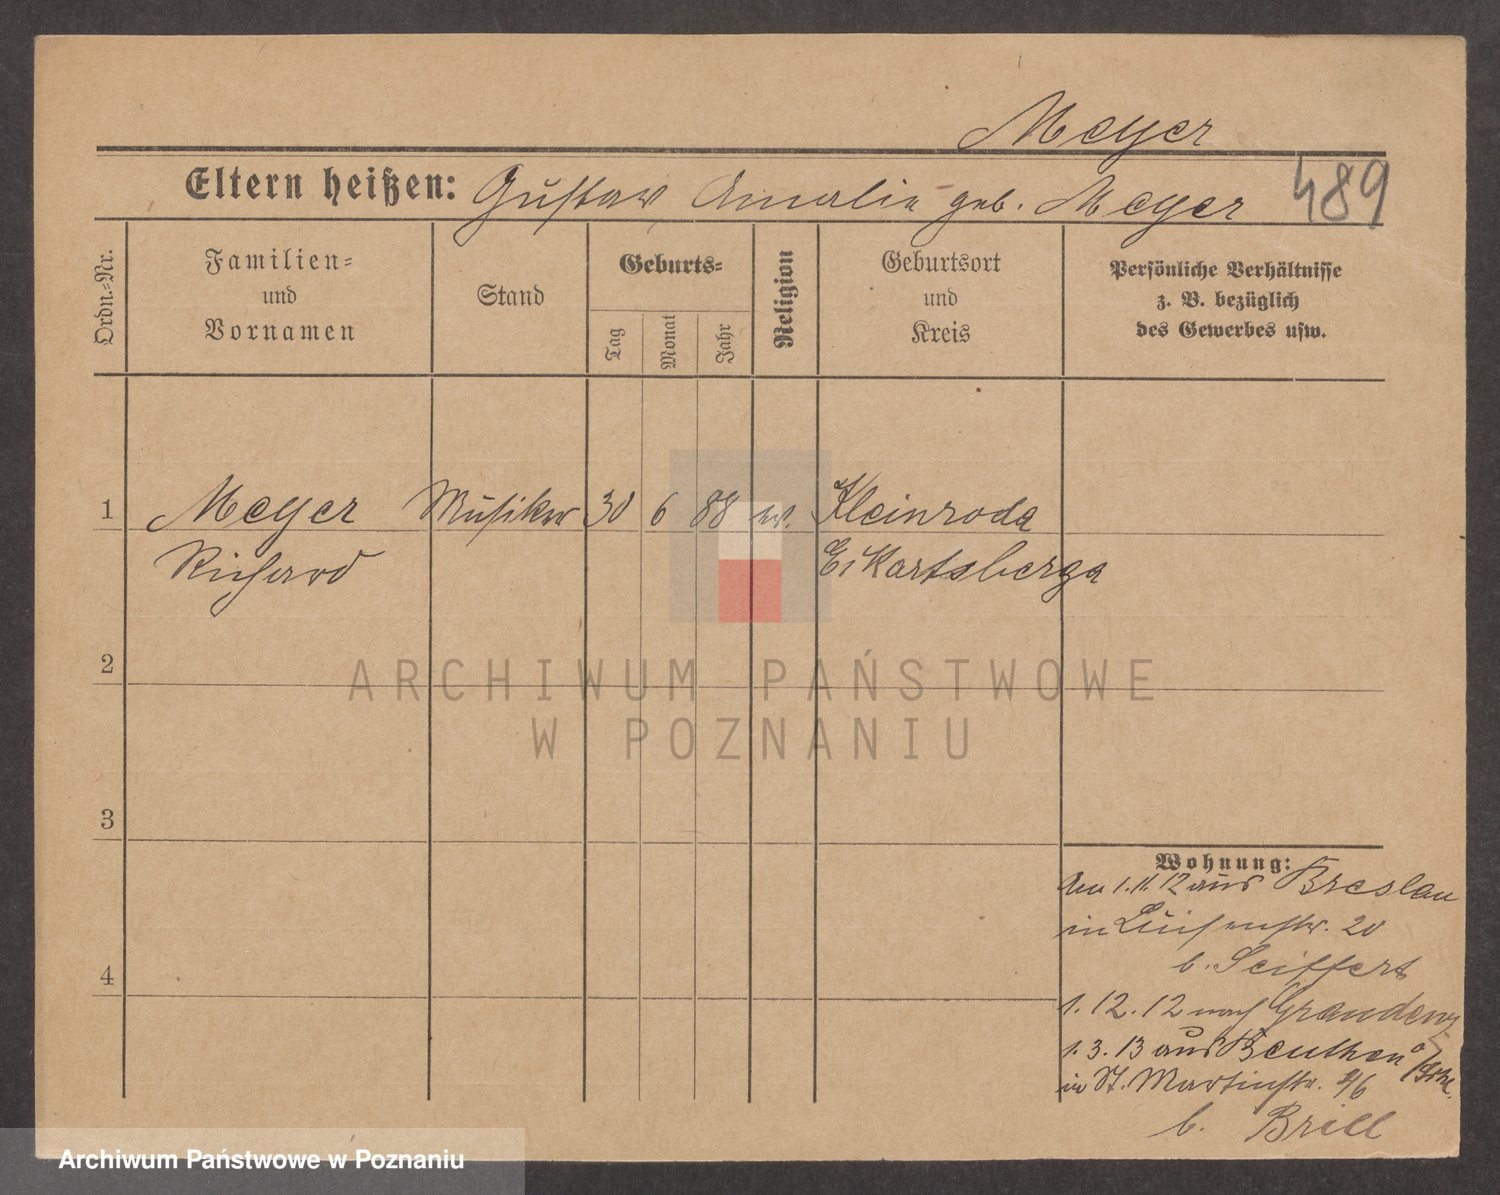 Meyer
Eltern heißen: Gustav Amalie geb. Meyer 489
Ordn.-Nr.
Familien-
und
Vornamen
Stand
Geburts-
Tag
Monat
Jahr
Religion
Geburtsort
und
Kreis
Persönliche Verhältnisse
z. B. bezüglich
des Gewerbes usw.
1 Meyer Musiker 30 6 88 ev. Kleinroda
Richard Eckartsberga
2
ARCHIWUM PAŃSTWOWE
W POZNANIU
3
Wohnung:
Am 1.11.12 aus Breslau
in Luisenstr. 20
b. Seiffert
4
1.12.12 nach Graudenz
1.3.13 aus Beuthen
in St. Martinstr.
b. Brill
Archiwum Państwowe w Poznaniu